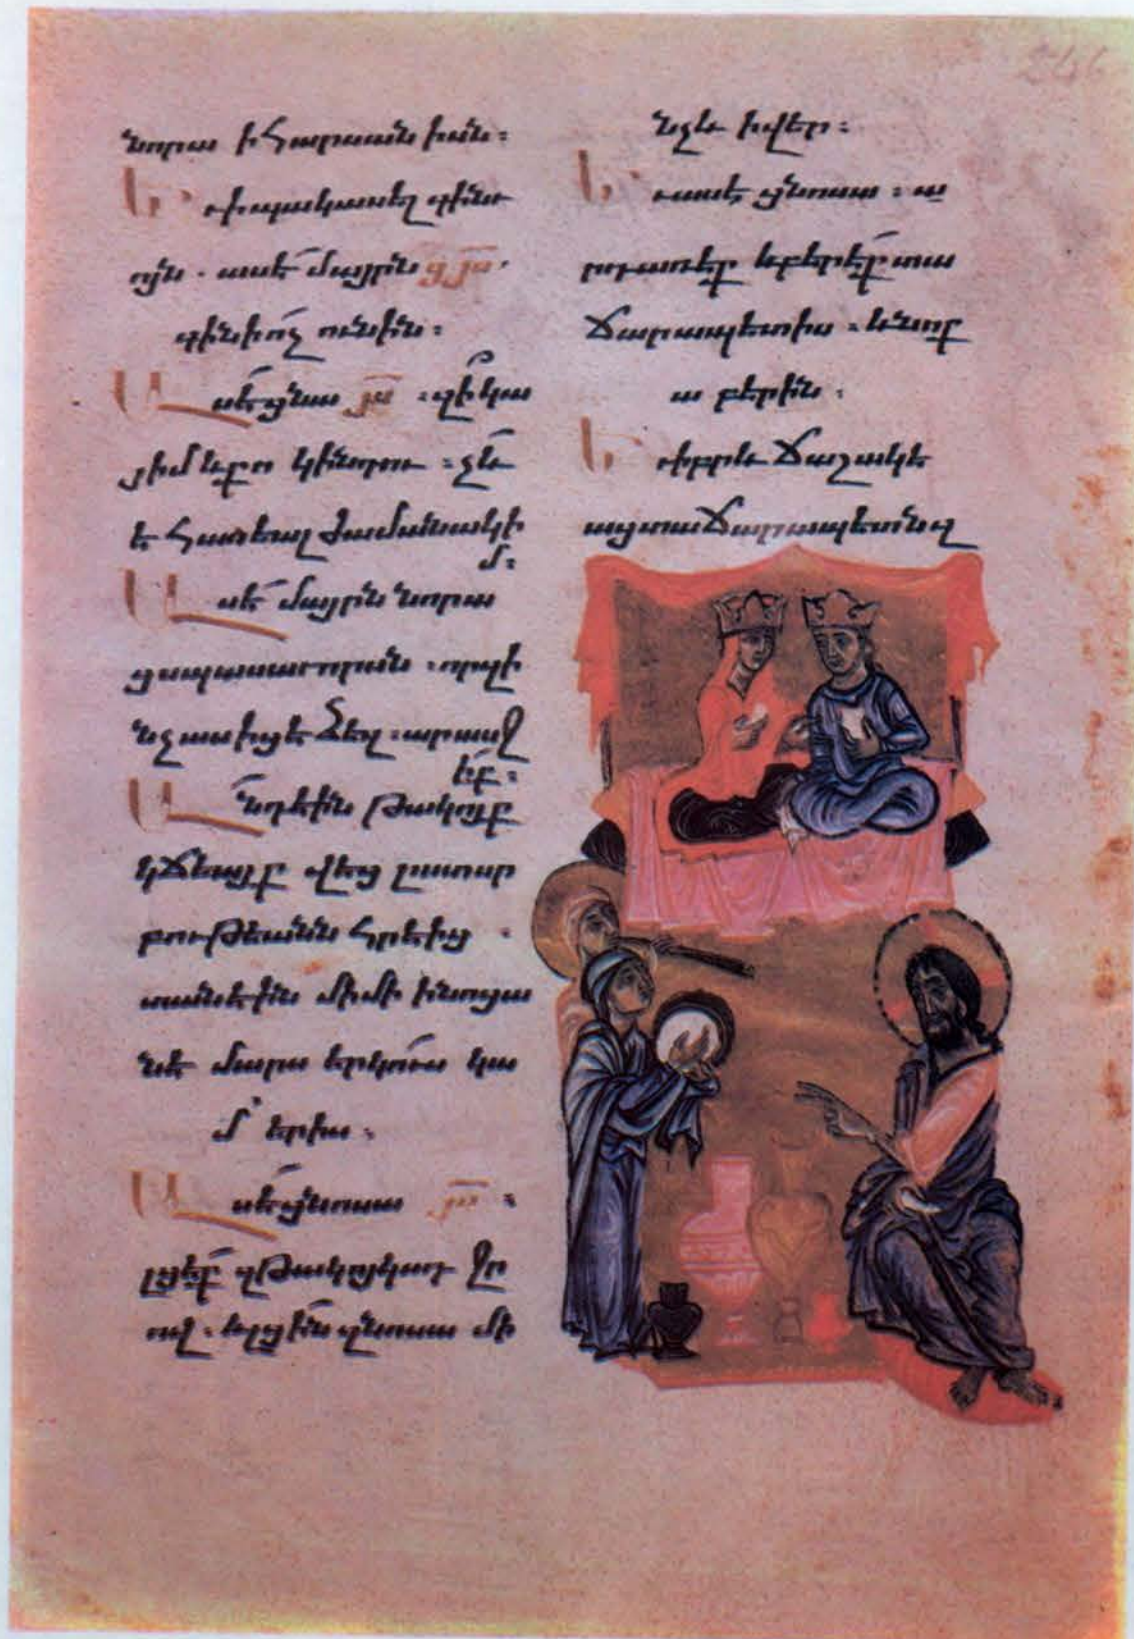 նորա ի հարսանիսն։
Եւ իպակասել գինւ
ոյն. ասէ մայրն ցյս՝
գինի ոչ ունին։
Ասէ ցնա յս. զի կա
յ իմ եւ քո կին դու. չեւ
է հասեալ ժամանակ ի
մ։
Ասէ մայրն նորա
ցսպասաւորսն. որ զի
նչ ասիցէ ձեզ. արասջ
իք։
Անդ էին թակոյկք
կճեայք վեց ըստ սր
բութեանն հրէից.
տանէին մի մի ի նոցա
նէ մարս երկուս կա
մ երիս։
Ասէ ցնոսա յս.
լցէք զթակոյկսդ ջր
ով. եւ լցին զնոսա մի
նչեւ ի վեր։
Եւ ասէ ցնոսա. ա
ռէք եւ բերէք տա
ճարապետիս. եւ նոք
ա բերին։
Եւ իբրեւ ճաշակե
աց տաճարապետն զ
246